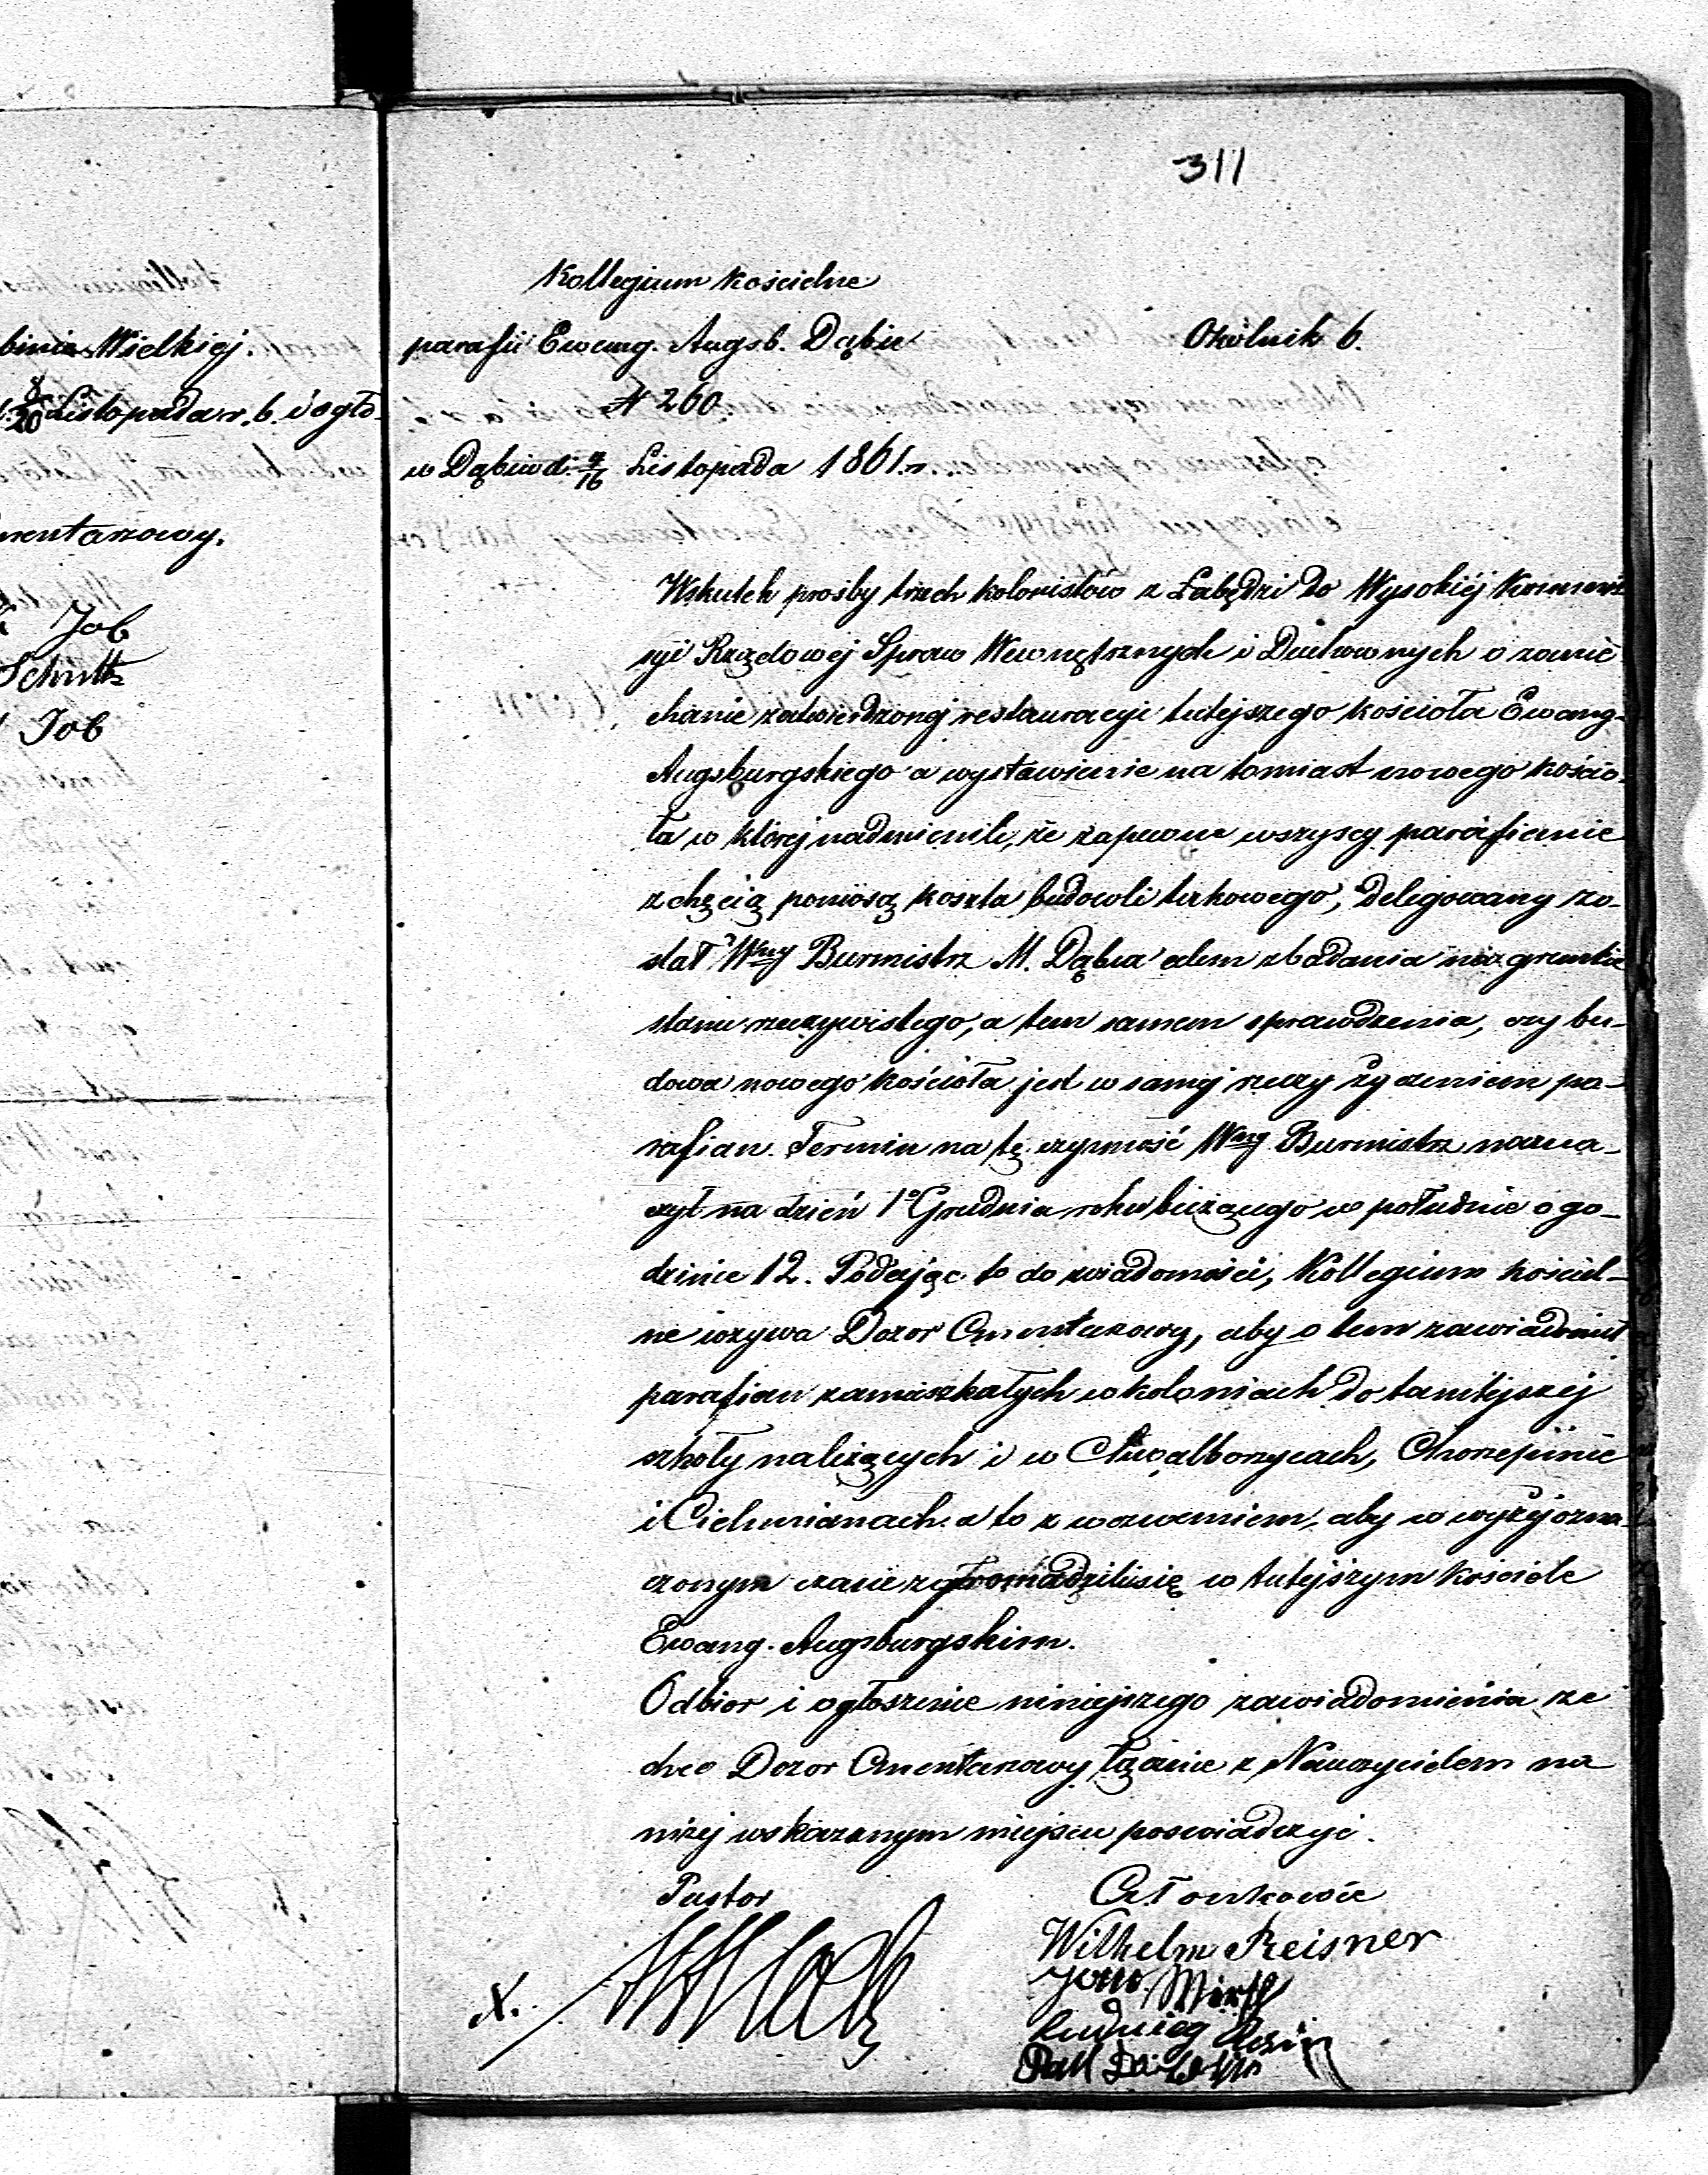 311
binie Wielkiej.
8/20 Listopada r. b. i ogło-
mentarzowy.
Job
Schultz
Job
Kollegium Kościelne
parafii Ewang. Augsb. Dąbie
Okólnik 6.
N 260
w Dąbiu d. 4/16 Listopada 1861 r.
Wskutek prośby trzech kolonistów z Łabędzi do Wysokiéj Kommis
syi Rządowéj Spraw Wewnętrznych i Duchownych o zanie
chanie zatwierdzonej restauracyi tutejszego kościoła Ewang-
Augsburgskiego a wystawienie na tomiast nowego kościo-
ła w której nadmienili, że zapewne wszyscy parafianie
z chęcią poniosą koszta budowli takowego, Delegowany zo-
stał Wny Burmistrz M. Dąbia celem zbadania na gruntie
stanu rzeczywistego, a tem samem sprawdzenia, czy bu-
dowa nowego kościoła jest w samej rzeczy życzeniem pa-
rafian. Termin na tę czynność Wny Burmistrz nazna-
czył na dzień 1o Grudnia roku bieżącego w południe o go-
dzinie 12. Podając to do wiadomości, Kollegium kościel-
ne wzywa Dozor Cmentarzowy, aby o tem zawiadomił
parafian zamieszkałych w koloniach do tamtejszéj
szkoły należących i w Chwalborzycach, Chorzepinie
i Cichmianach a to z wezwaniem, aby w wyżéj ozna-
czonym czasie zgromadzili się w tutejszym kościele
Ewang. Augsburgskim.
Odbior i ogłoszenie niniejszego zawiadomienia ze
chce Dozor Cmentarzowy łącznie z Nauczycielem na
niżej wskazanym miejscu poswiadczyć.
Pastor
Członkowie
Wilhelm Reisner
X.
Ludwieg